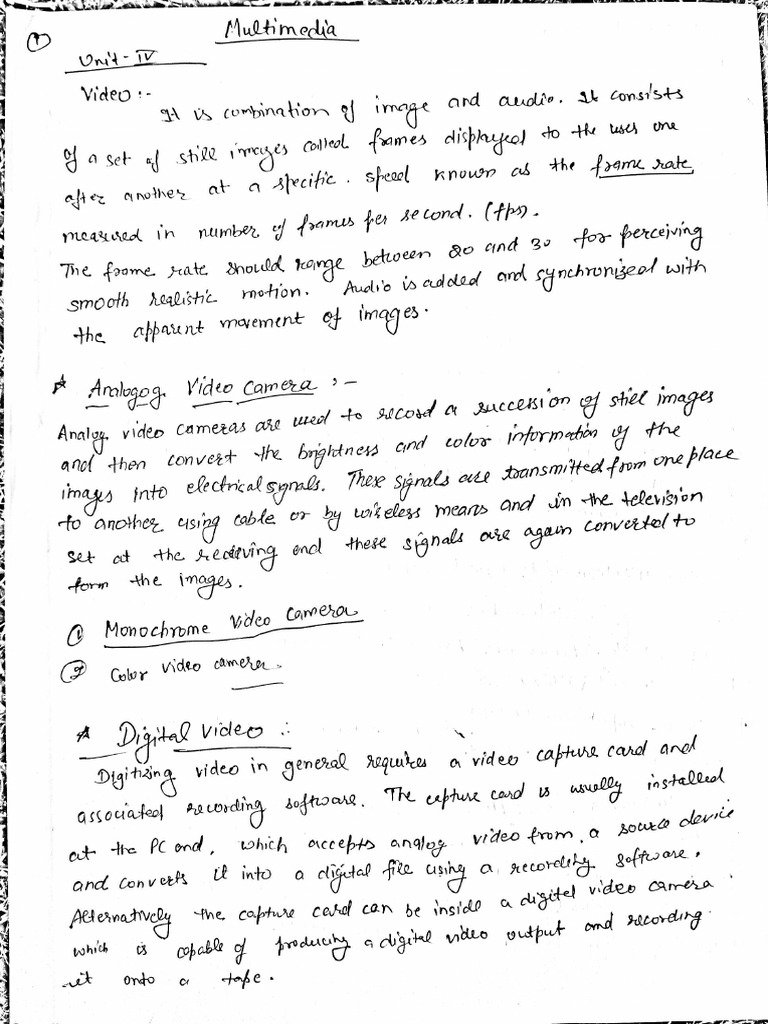 1
Multimedia
Unit - IV
Video :-
It is combination of image and audio. It consists
of a set of still images called frames displayed to the user one
after another at a specific. speed known as the frame rate
measured in number of frames per second. (fps).
The frame rate should range between 20 and 30 for perceiving
smooth realistic motion. Audio is added and synchronized with
the apparent movement of images.
* Analogog Video Camera :-
Analog video cameras are used to record a succession of still images
and then convert the brightness and color information of the
images into electrical signals. These signals are transmitted from one place
to another using cable or by wireless means and in the television
set at the receiving end these signals are again converted to
form the images.
① Monochrome Video Camera
② Color video camera.
* Digital Video :
Digitizing video in general requires a video capture card and
associated recording software. The capture card is usually installed
at the PC end, which accepts analog video from a source device
and converts it into a digital file using a recording software.
Alternatively the capture card can be inside a digital video camera
which is capable of producing a digital video output and recording
it onto a tape.